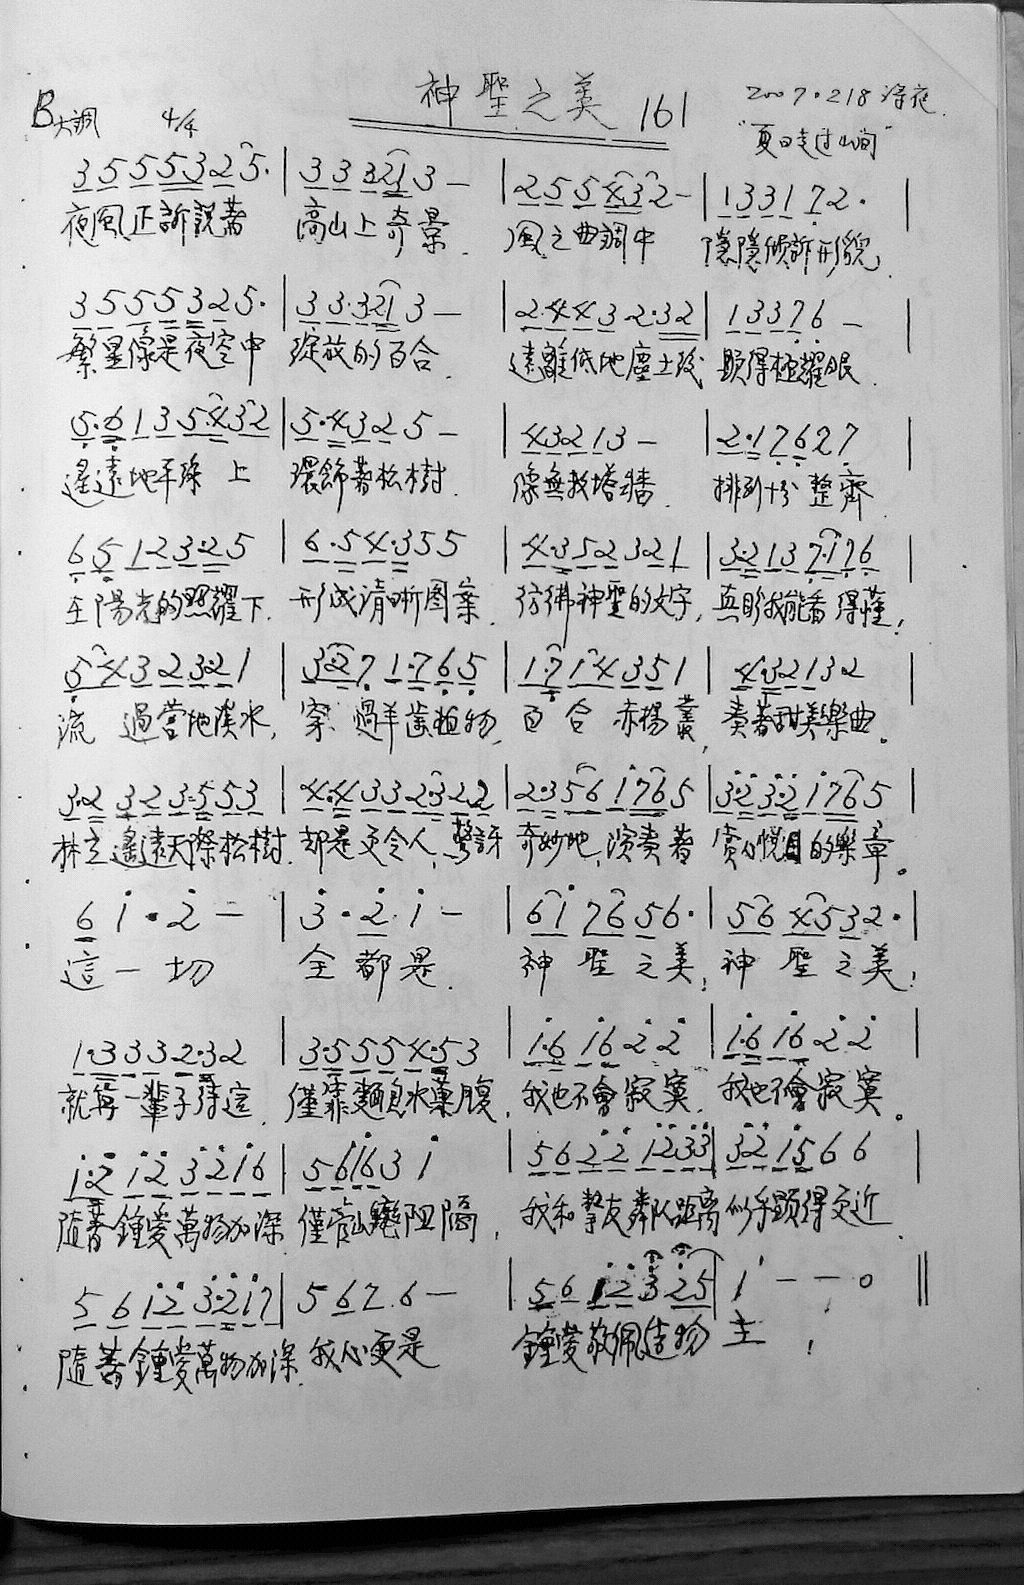 神聖之美 161
2007.218 深夜
B大調 4/4
"夏日走过山间"
3 5 5 5 3 2 5· | 3 3 3 2 1 3 — | 2 5 5 4 3 2 — | 1 3 3 1 7 2 · |
夜風正訴説著 高山上奇景. 風之曲調中 隱隱傾訴形貌.
3 5 5 5 3 2 5· | 3 3·3 2 1 3 — | 2·4 4 3 2·3 2 | 1 3 3 7 6 — |
繁星像是夜空中 綻放的百合. 遠離低地塵土後 顯得極耀眼.
5·6 1 3 5·4 3 2 | 5·4 3 2 5 — | 4 3 2 1 3 — | 2·1 7 6 2 7 |
遙遠地平線上 環飾著松樹. 像無數塔牆. 排列十分整齊
6 5 1 2 3·2 5 | 6·5 4·3 5 5 | 4·3 5 2 3 2 1 | 3·2 1 3 7·1 7 6 |
在陽光的照耀下. 形成清晰图案. 彷彿神聖的文字, 真盼我能看得懂!
5 4 3 2 3·2 1 | 3·2 7 1·7 6 5 | 1·7 1 4 3 5 1 | 4·3 2 1 3 2
流過營地溪水, 穿過羊齒植物, 百合赤楊叢, 奏著甜美樂曲。
3·2 3 2 3·5 5 3 | 4·4 3 3 2·3 2 2 | 2·3 5 6 1 7 6 5 | 3·2 3·2 1 7 6 5 |
林立遙遠天際松樹. 却是更令人驚訝 奇妙地演奏著 賞心悅目的樂章。
6 1 · 2 — | 3 · 2 · 1 — | 6 1 7 6 5 6 · | 5 6 4 5 3 2 · |
這一切 全都是. 神聖之美! 神聖之美!
1·3 3 3 2·3 2 | 3·5 5 5 4·5 3 | 1·6 1 6 2 2 | 1·6 1 6 2 2 |
就算一輩子待這. 僅靠麵包水菓腹. 我也不會寂寞. 我也不會寂寞。
1·2 1 2 3 2 1 6 | 5 6 1 6 3 1 | 5 6 2 2 1 2 3 3 | 3 2 1 5 6 6
隨著鍾愛萬物加深 僅管山巒阻隔, 我和摯友鄰人距離 似乎顯得更近
5 6 1 2 3·2 1 7 | 5 6 7 6 — | 5 6 1 2 3 2 5 | 1 — — 0 ‖
隨著鍾愛萬物加深. 我心更是 鍾愛敬佩造物主!